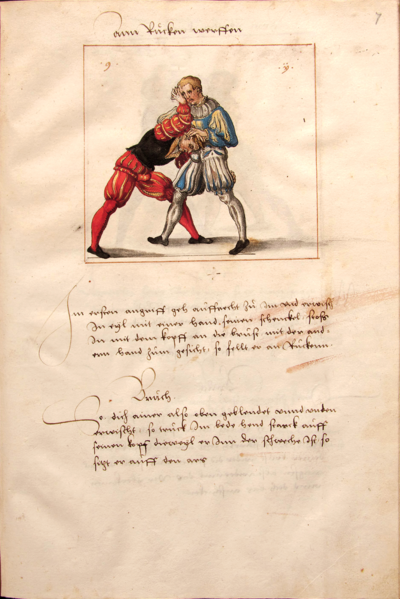 7
ann Rücken werffen
9 9
Im ersten angriff geh auffrecht zu Im und erwisch
In eyl mit einer hand seinen schenckel, stoss
In mit dem kopff an die brust mit der and
ern hand zum gesicht, so fellt er an Rückenn
Bruch
So dich ainer also oben geblendet unnd unden
erwischt, so truck Im bede hend starck auff
seinen kopff dieweyl er Inn der schweche ist so
sigt er auff den ars